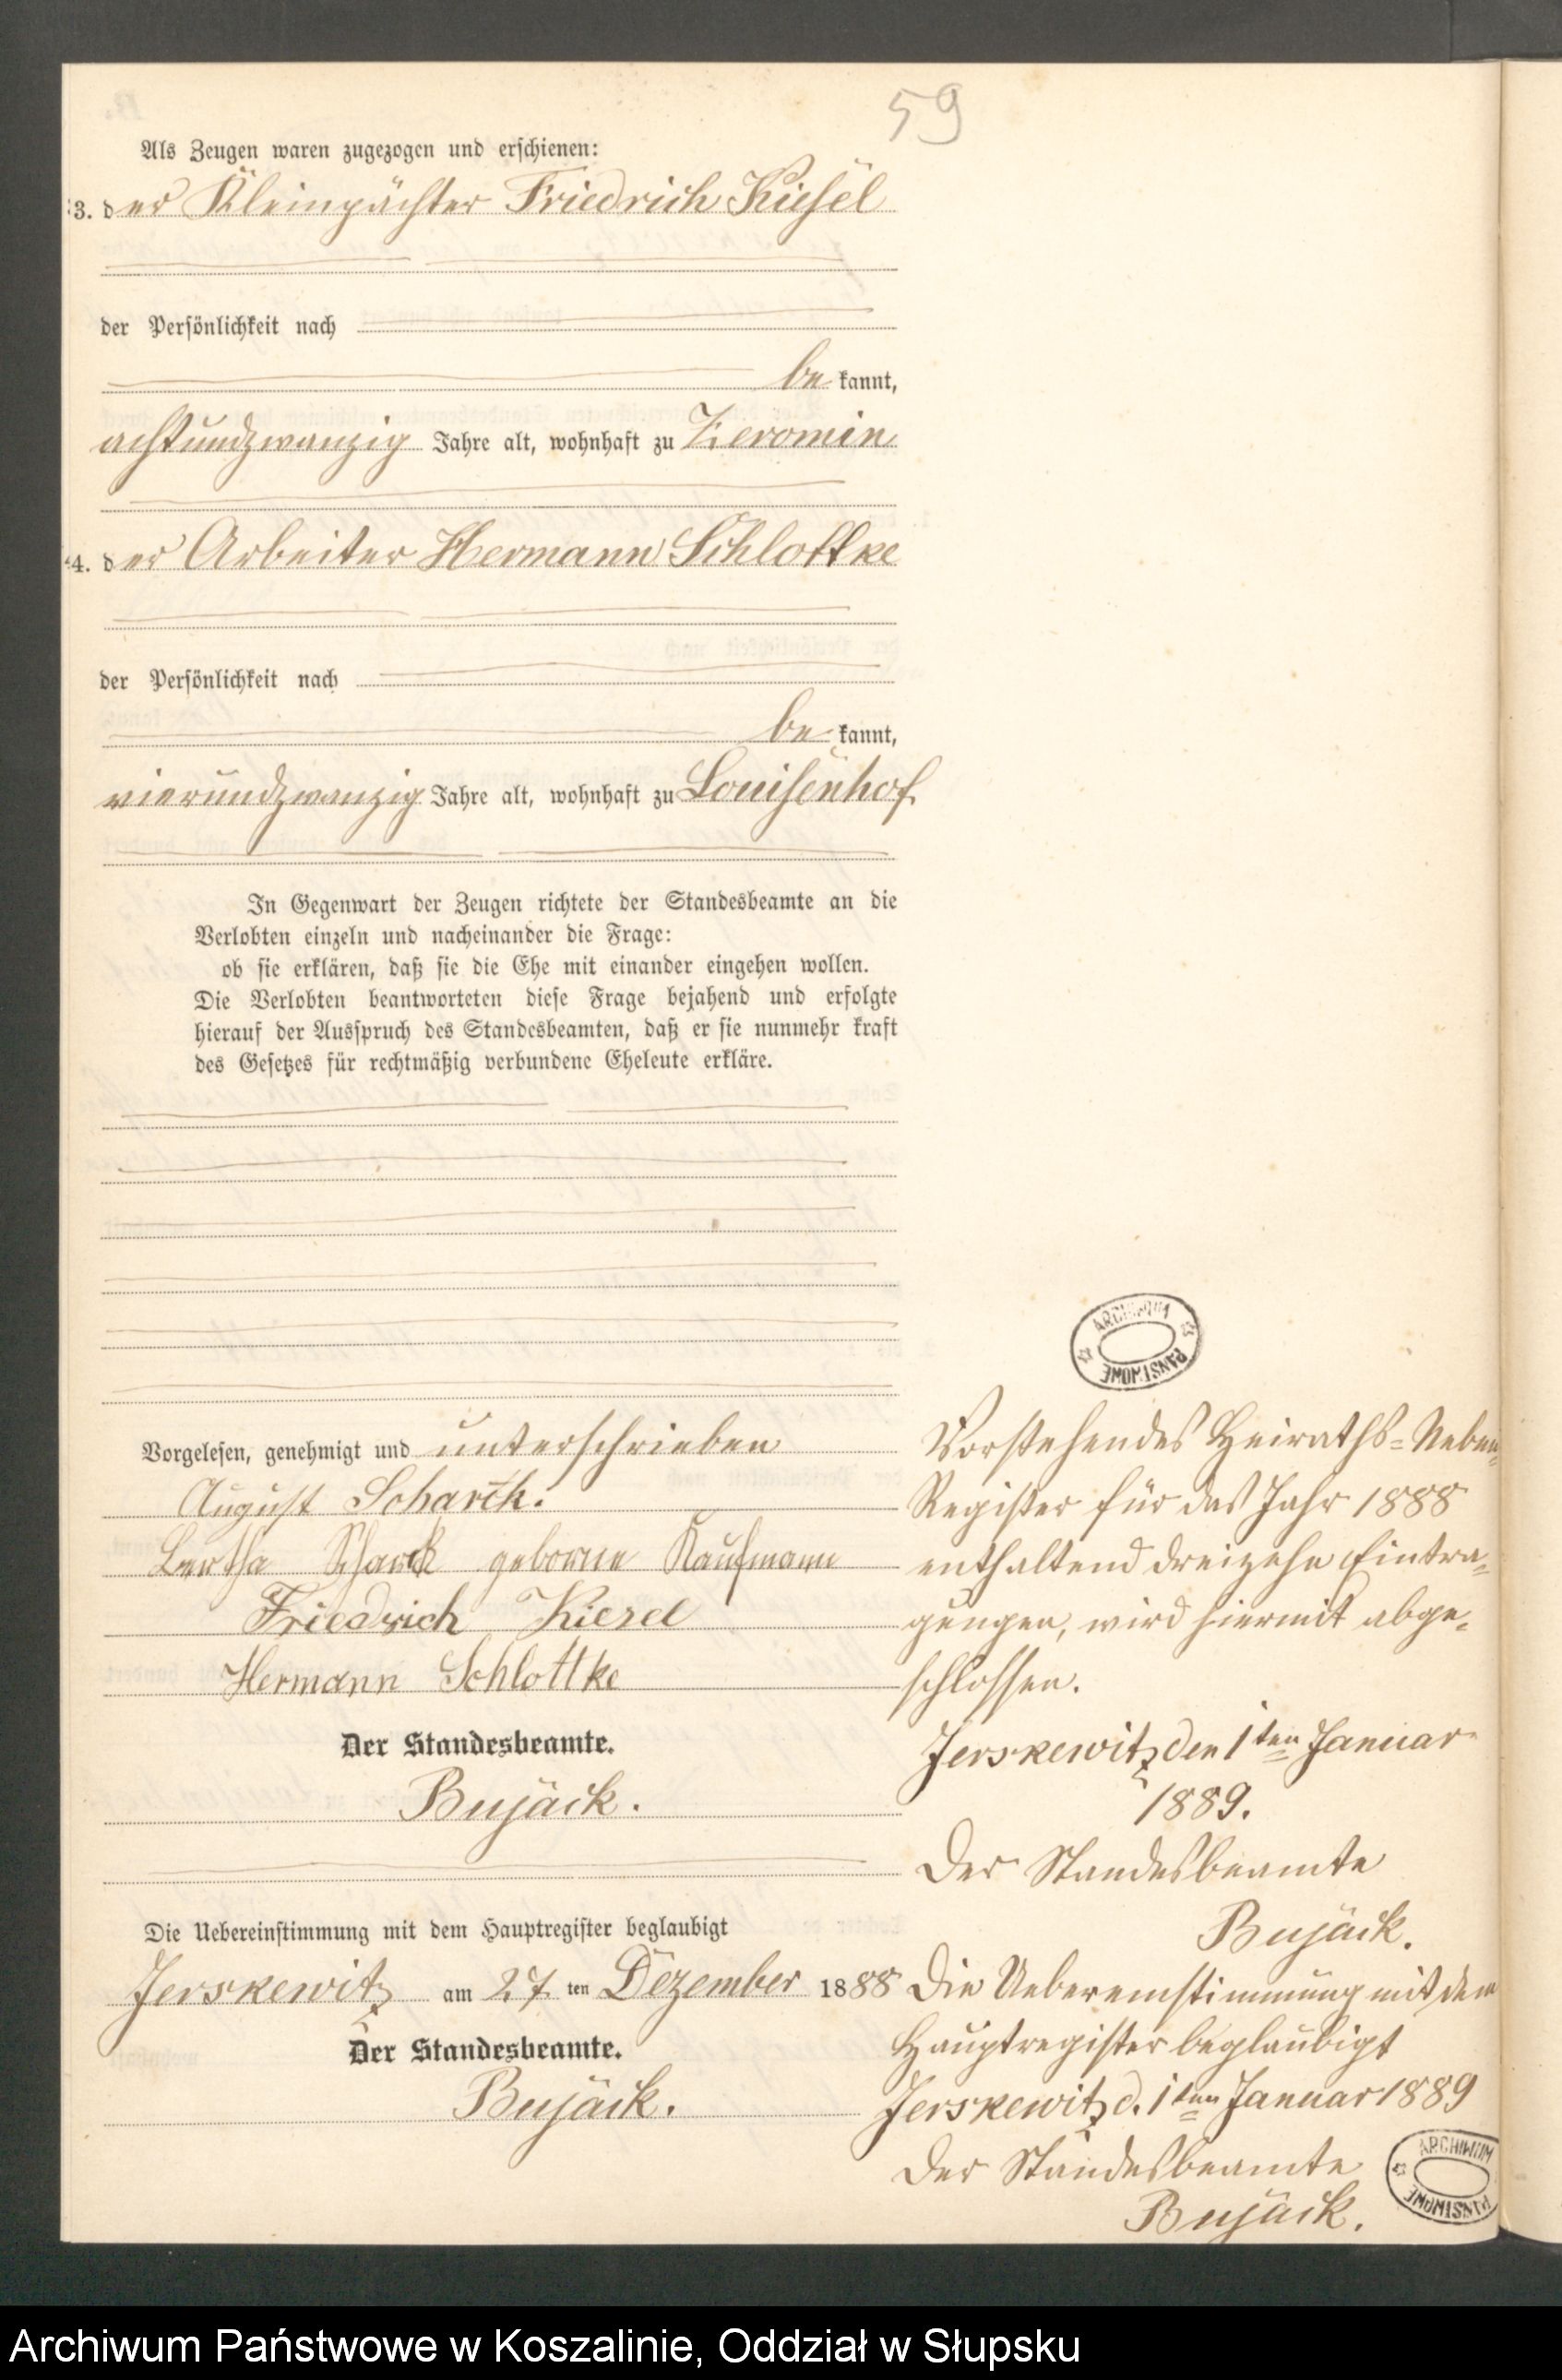 59
Als Zeugen waren zugezogen und erschienen:
3. der Kleinpächter Friedrich Kiesel
der Persönlichkeit nach
bekannt,
achtundzwanzig Jahre alt, wohnhaft zu Zeromin
4. der Arbeiter Hermann Schlottke
der Persönlichkeit nach
bekannt,
vierundzwanzig Jahre alt, wohnhaft zu Louisenhof.
In Gegenwart der Zeugen richtete der Standesbeamte an die
Verlobten einzeln und nacheinander die Frage:
ob sie erklären, daß sie die Ehe mit einander eingehen wollen.
Die Verlobten beantworteten diese Frage bejahend und erfolgte
hierauf der Ausspruch des Standesbeamten, daß er sie nunmehr kraft
des Gesetzes für rechtmäßig verbundene Eheleute erkläre.
Vorgelesen, genehmigt und unterschrieben
August Scharck.
Bertha Scharck geborne Kaufmann
Friedrich Kiesel
Hermann Schlottke
Der Standesbeamte.
Bujack.
Die Uebereinstimmung mit dem Hauptregister beglaubigt
Jerskewitz am 27 ten Dezember 1888
Der Standesbeamte.
Bujack.
ARCHIWUM PAŃSTWOWE
Vorstehendes Heiraths-Neben-
Register für das Jahr 1888
enthaltend dreizehn Eintra-
gungen, wird hiermit abge-
schlossen.
Jerskewitz den 1ten Januar
1889.
Der Standesbeamte
Bujack.
Die Uebereinstimmung mit dem
Hauptregister beglaubigt
Jerskewitz d. 1ten Januar 1889
Der Standesbeamte
Bujack.
ARCHIWUM PAŃSTWOWE
Archiwum Państwowe w Koszalinie, Oddział w Słupsku